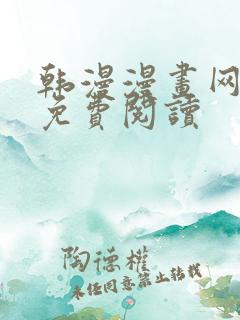 韩漫漫畫网
免費閱讀
陶德權
未任同意禁止转载